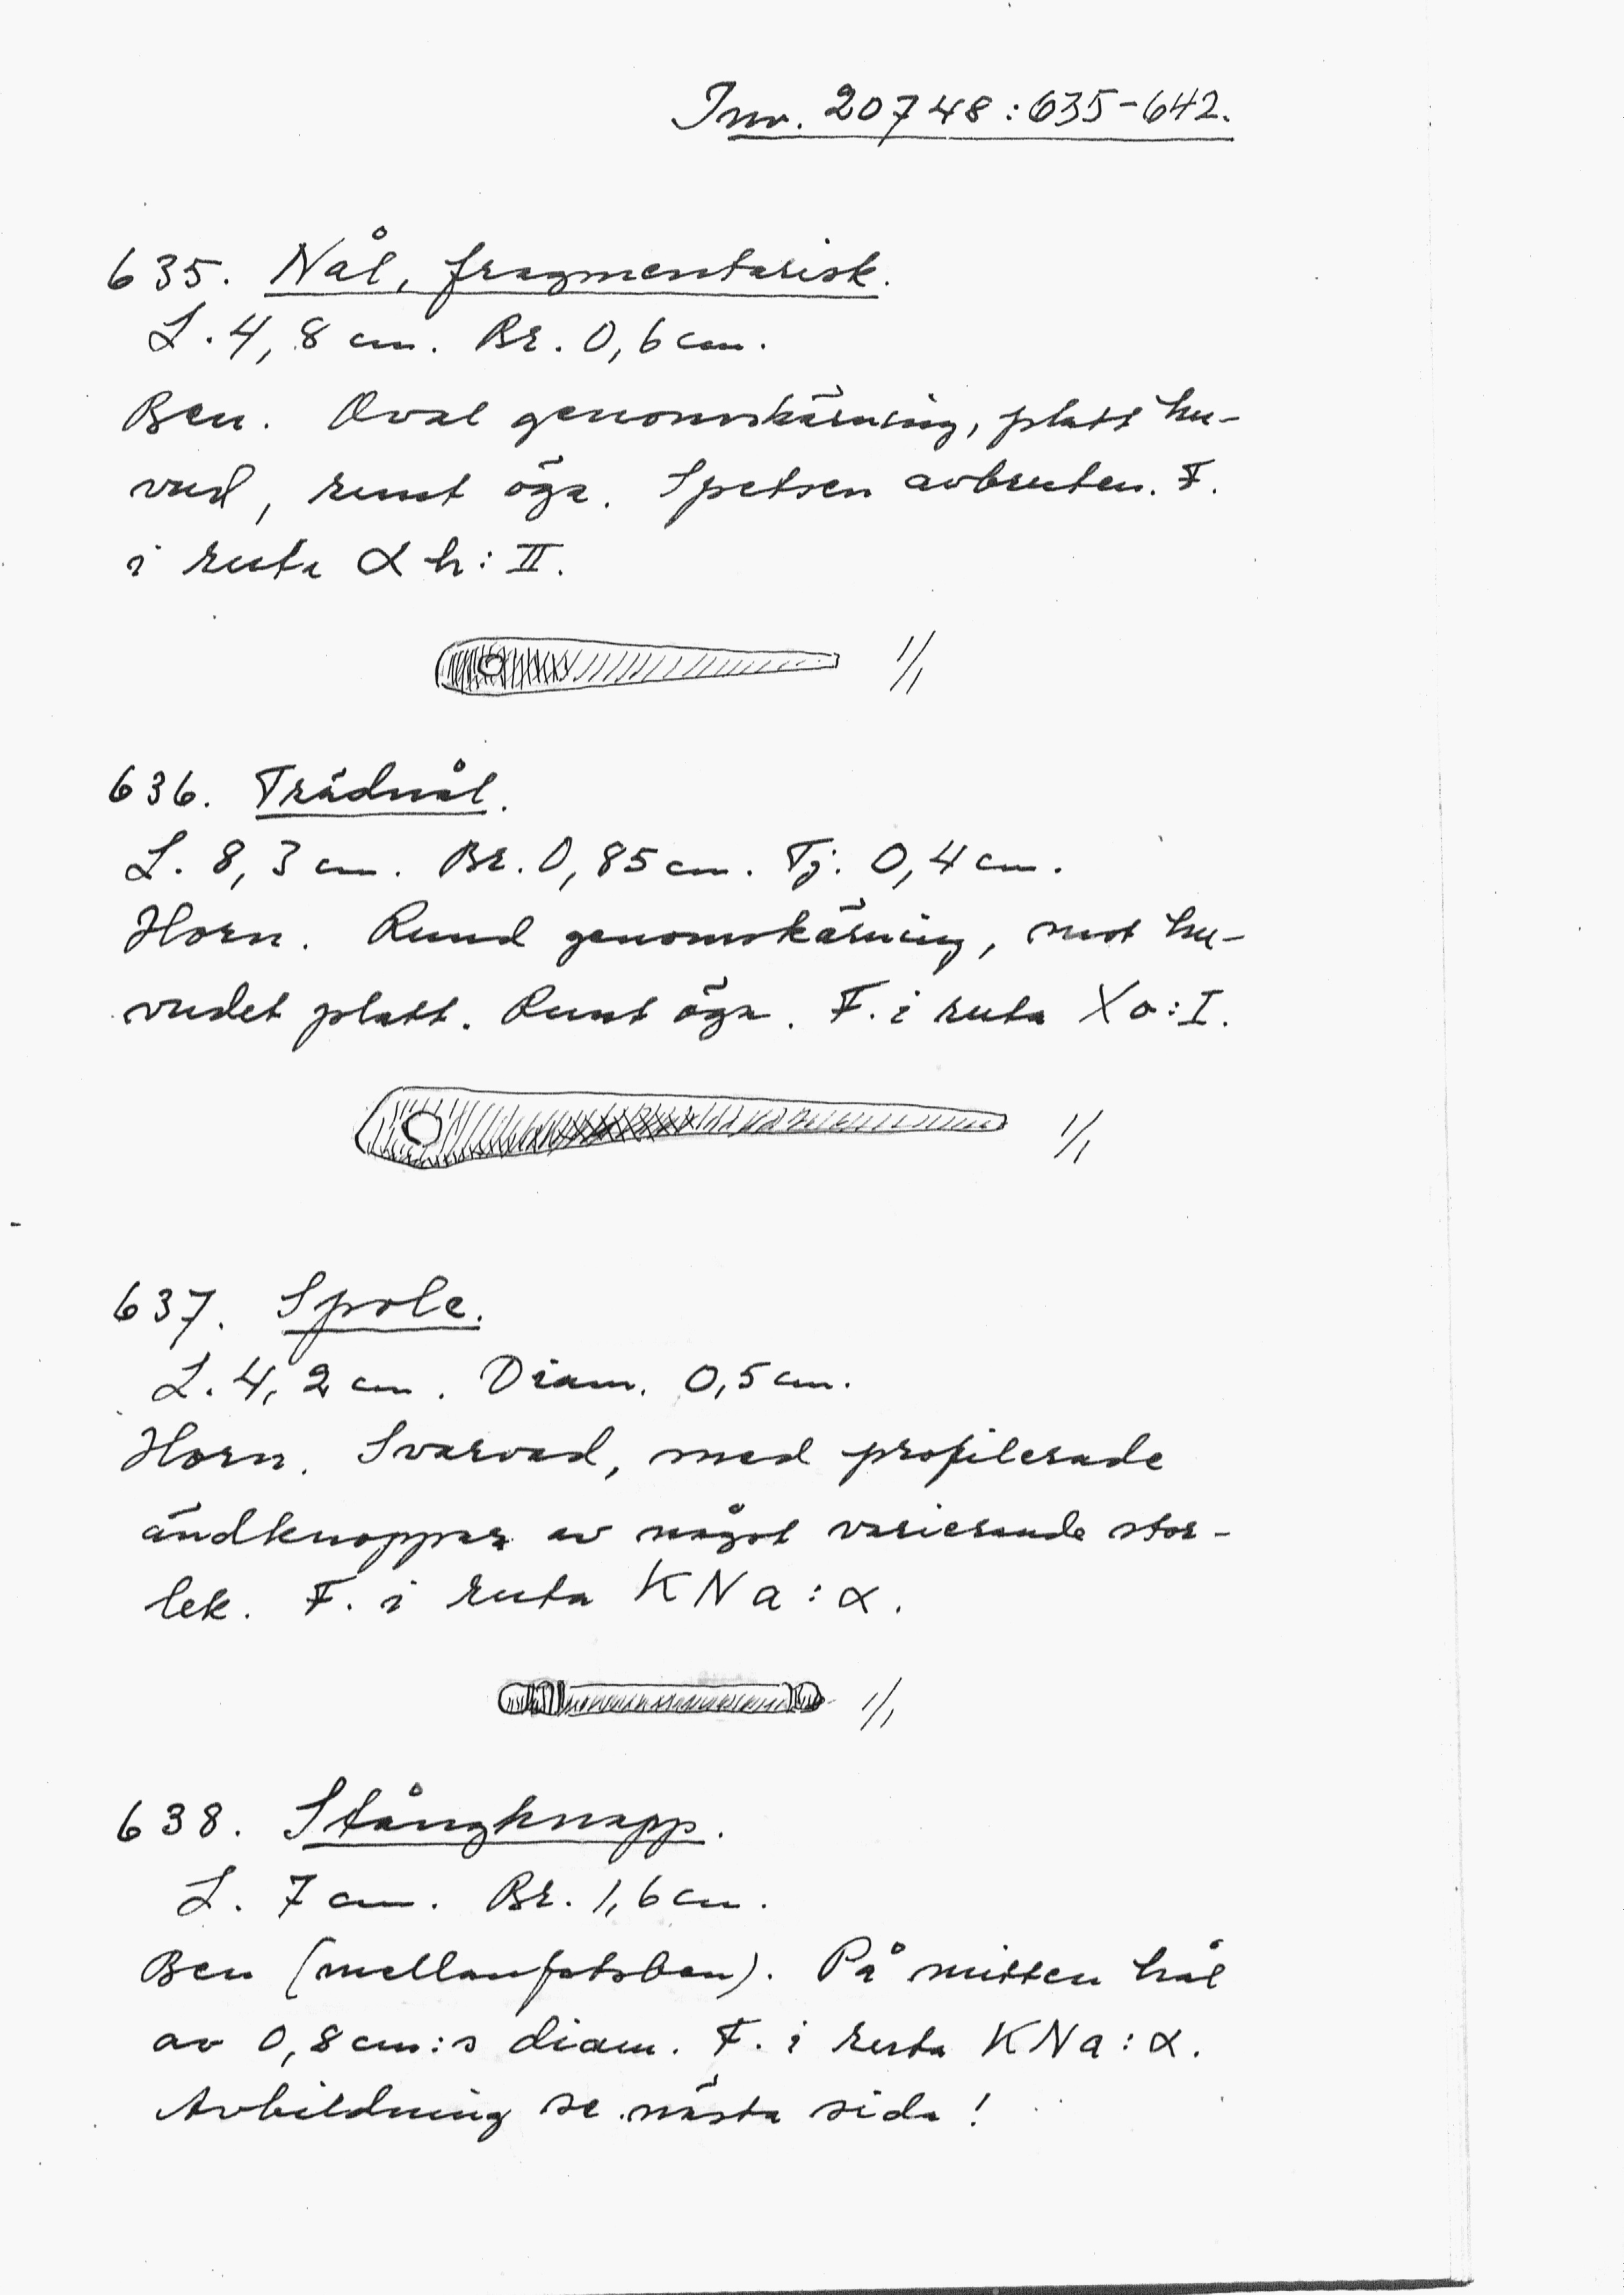 Inv. 20748:635-642.
635. Nål, fragmentarisk.
L. 4,8 cm. Br. 0,6 cm.
Ben. Oval genomskärning, platt hu-
vud, runt öga. Spetsen avbruten. F.
i ruta α h: II.
1/1
636. Trådnål.
L. 8,3 cm. Br. 0,85 cm. Tj. 0,4 cm.
Horn. Rund genomskärning, mot hu-
vudet platt. Runt öga. F. i ruta Xo:I.
1/1
637. Spole.
L. 4,2 cm. Diam. 0,5 cm.
Horn. Svarvad, med profilerade
ändknoppar av något varierande stor-
lek. F. i ruta KNa:α.
1/1
638. Stångknapp.
L. 7 cm. Br. 1,6 cm.
Ben (mellanfotsben). På mitten hål
av 0,8 cm:s diam. F. i ruta KNa:α.
Avbildning se nästa sida!